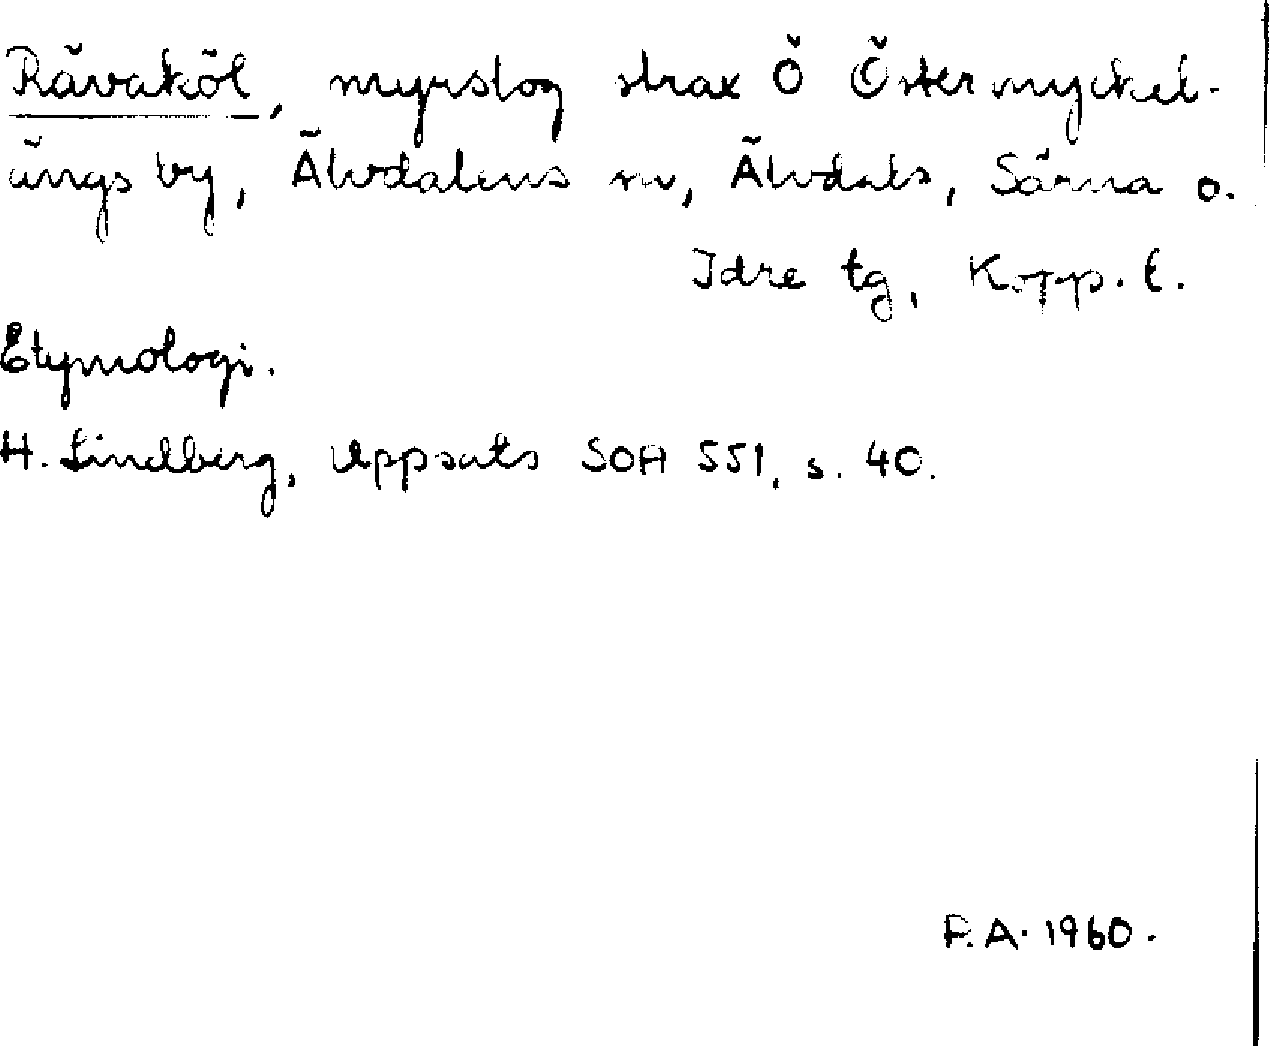 Rävaköl, myrslog strax Ö Östermyckel-
ängs by, Älvdalens sn, Älvdals, Särna o.
Idre tg, Kopp. l.
Etymologi.
H. Lindberg, Uppsats SOA 551, s. 40.
F.A. 1960.